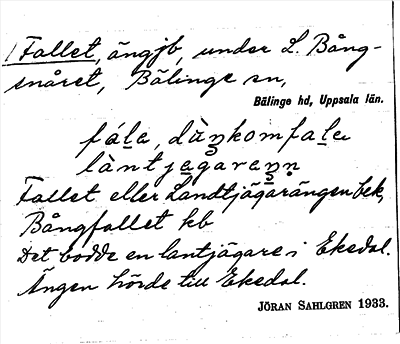 Fallet, ängjb, under L. Bång-
snåret, Bälinge sn,
Bälinge hd, Uppsala län.
Fallet eller Landtjägarängen bek.
Bångfallet kb
Det bodde en lantjägare i Ekedal.
Ängen hörde till Ekedal.
JÖRAN SAHLGREN 1933.